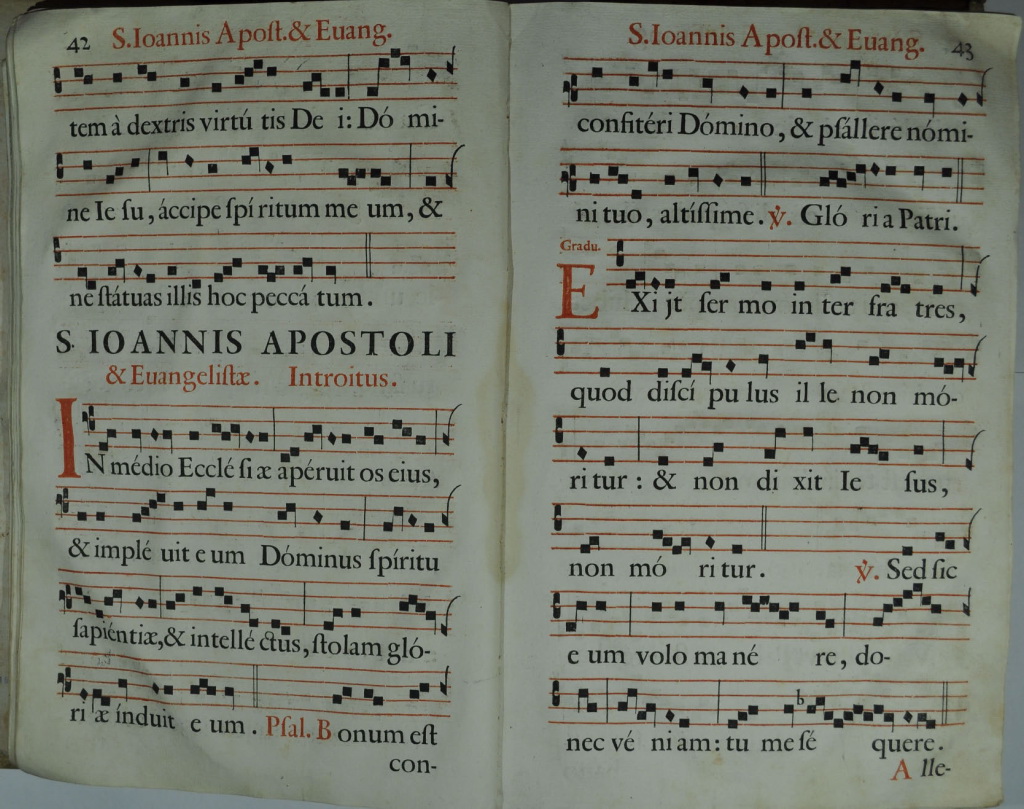 42 S. Ioannis Apoſt. & Euang.
tem à dextris virtú tis De i: Dó mi-
ne Ie ſu, áccipe ſpí ritum me um, &
ne ſtátuas illis hoc peccá tum.
S. IOANNIS APOSTOLI
& Euangeliſtæ. Introitus.
IN médio Eccléſi æ apéruit os eius,
& implé uit e um Dóminus ſpíritu
ſapiéntiæ, & intellé ctus, ſtolam gló-
ri æ índuit e um. Pſal. B onum eſt
con-
S. Ioannis Apoſt. & Euang. 43
confitéri Dómino, & pſállere nómi-
ni tuo, altíſſime. ℣. Gló ri a Patri.
Gradu.
EXi jt ſer mo in ter fra tres,
quod diſcí pu lus il le non mó-
ri tur : & non di xit Ie ſus,
non mó ri tur. ℣. Sed ſic
e um volo ma né re, do-
nec vé ni am: tu me ſé quere.
A lle-